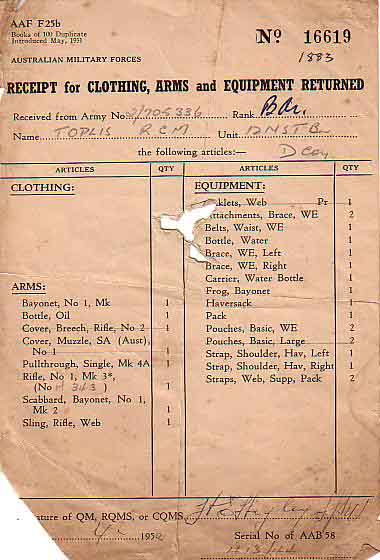 AAF F25b
Books of 100 Duplicate
Introduced May, 1951
No 16619
1883
AUSTRALIAN MILITARY FORCES
RECEIPT for CLOTHING, ARMS and EQUIPMENT RETURNED
Received from Army No. 2/705336 Rank Bdr.
Name TOPLIS R C M Unit 12 NST Bn
the following articles:— D Coy
ARTICLES QTY ARTICLES QTY
CLOTHING:
ARMS:
Bayonet, No 1, Mk 1
Bottle, Oil 1
Cover, Breech, Rifle, No 2 1
Cover, Muzzle, SA (Aust),
No 1 1
Pullthrough, Single, Mk 4A 1
Rifle, No 1, Mk 3*,
(No 343) 1
Scabbard, Bayonet, No 1,
Mk 2 1
Sling, Rifle, Web 1
EQUIPMENT:
klets, Web Pr 1
ttachments, Brace, WE 2
Belts, Waist, WE 1
Bottle, Water 1
Brace, WE, Left 1
Brace, WE, Right 1
Carrier, Water Bottle 1
Frog, Bayonet 1
Haversack 1
Pack 1
Pouches, Basic, WE 2
Pouches, Basic, Large 2
Strap, Shoulder, Hav, Left 1
Strap, Shoulder, Hav, Right 1
Straps, Web, Supp, Pack 2
ature of QM, RQMS, or CQMS
195 Serial No of AAB 58